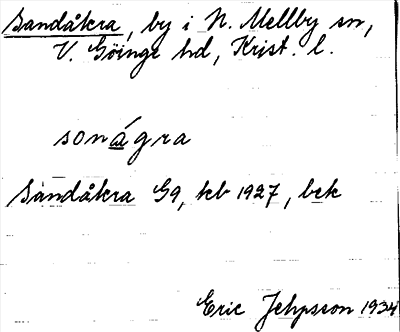 Sandåkra, by i N. Mellby sn,
V. Göinge hd, Krist. l.
sonágra
Sandåkra G9, kb 1927, bek
Eric Jehpsson 1934